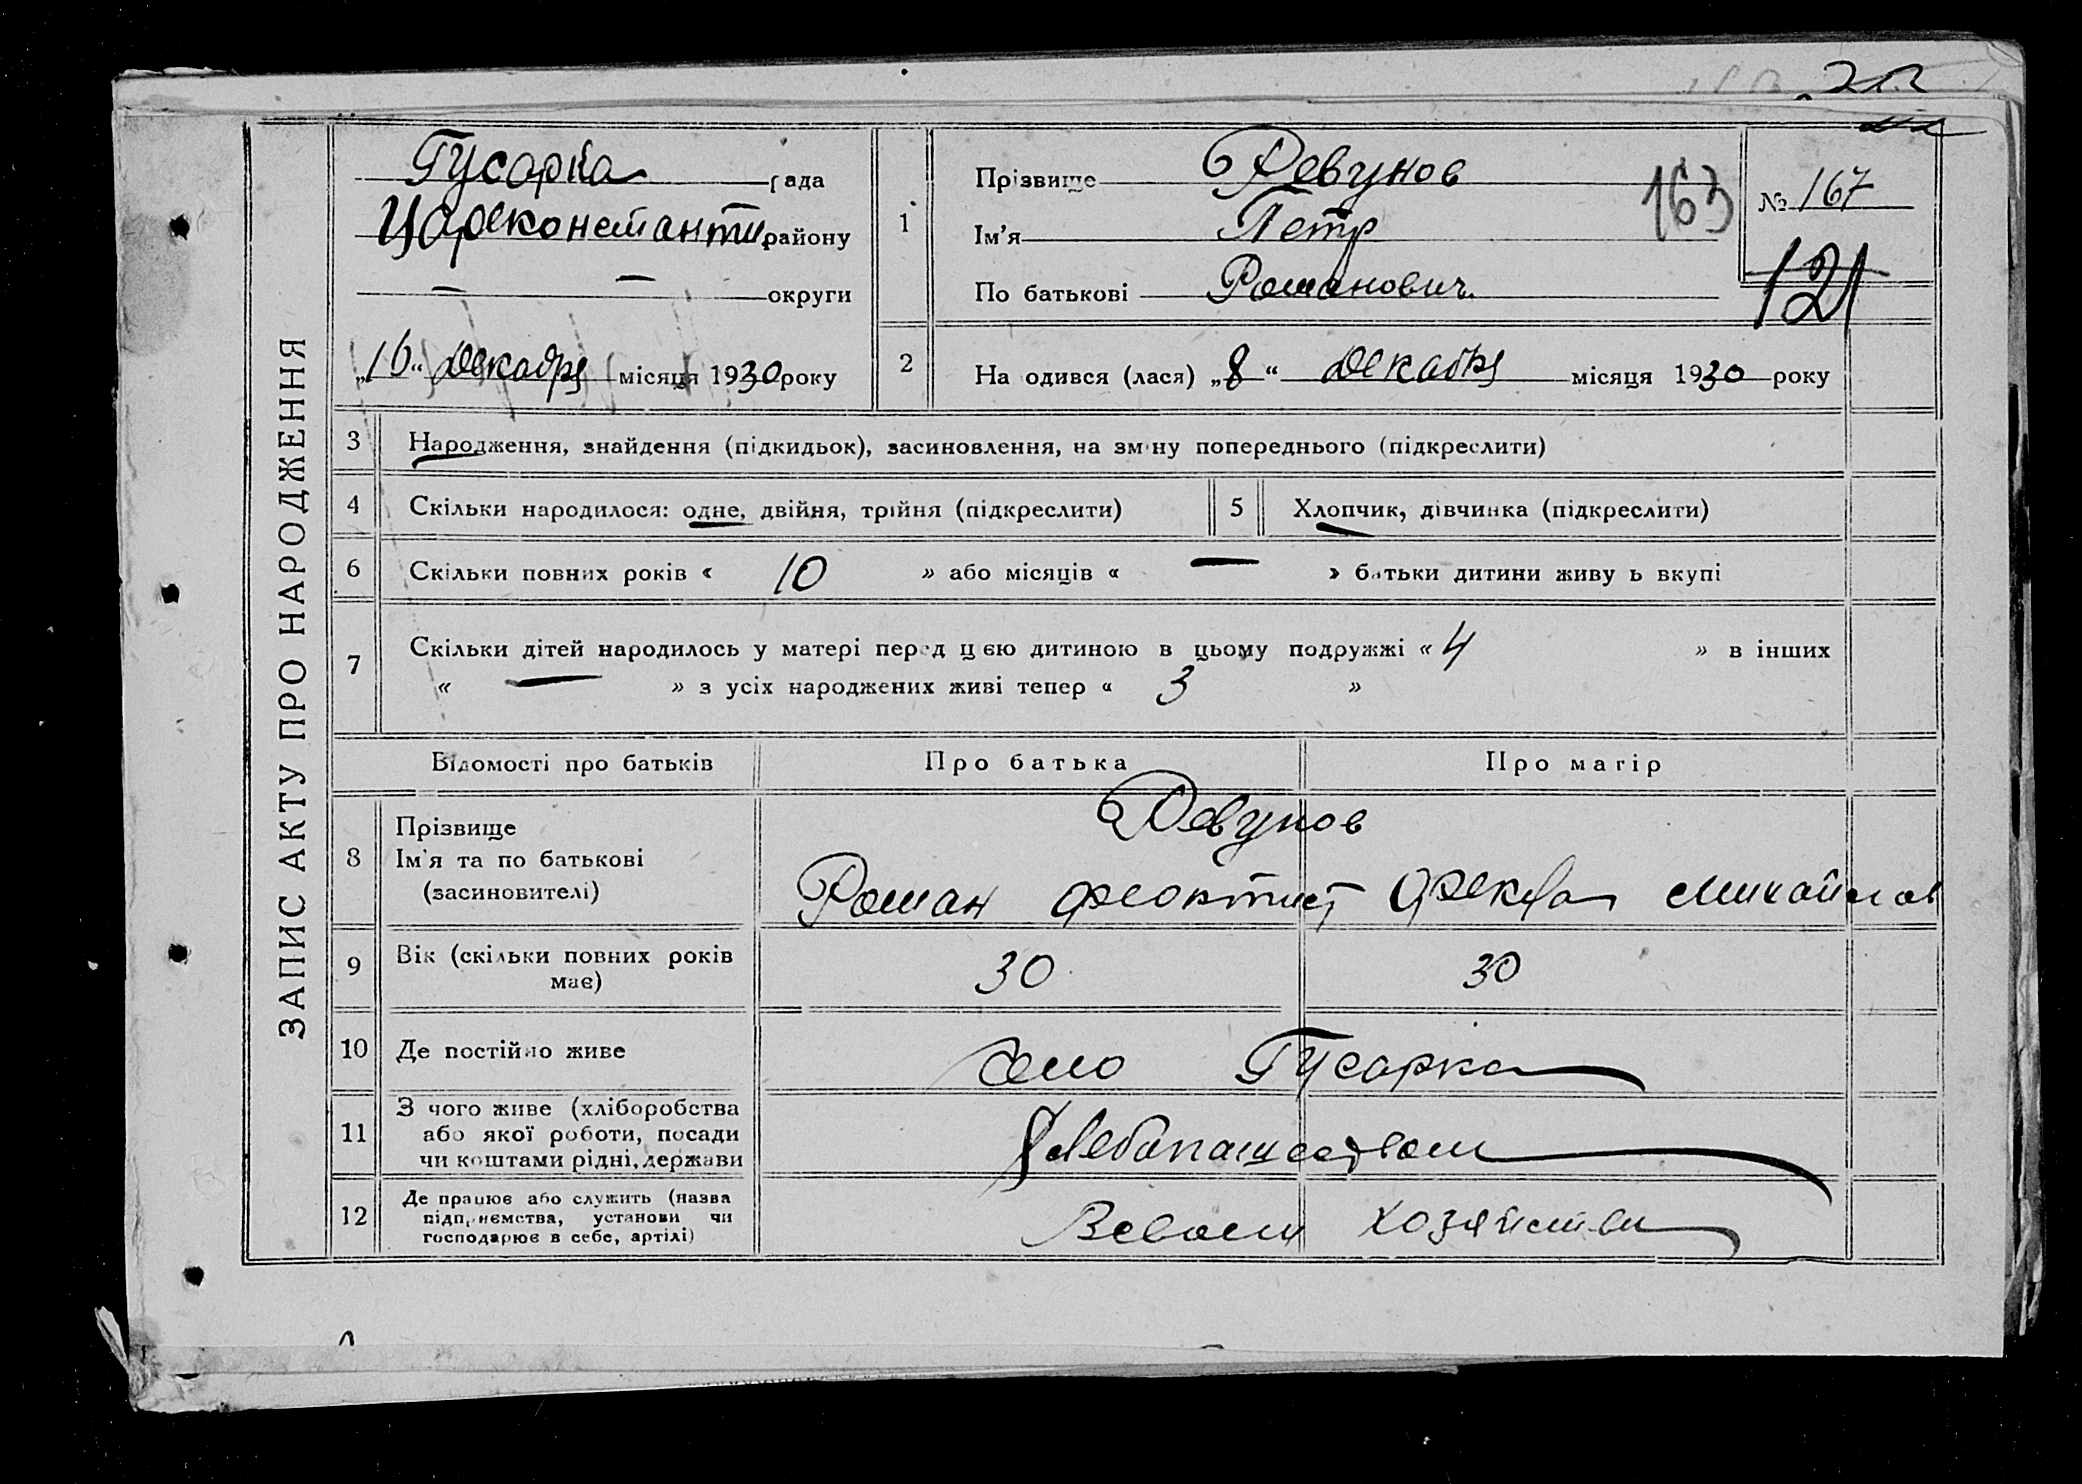 ЗАПИС АКТУ ПРО НАРОДЖЕННЯ
Гусарка рада
Цареконстанти району
— — округи
„16“ Декабря місяця 1930 року
1
Прізвище Ревунов
Ім'я Петр
По батькові Романович
163
№ 167
121
2
На одився (лася) „8“ Декабря місяця 1930 року
3 Народження, знайдення (підкидьок), засиновлення, на зміну попереднього (підкреслити)
4 Скільки народилося: одне, двійня, трійня (підкреслити) 5 Хлопчик, дівчинка (підкреслити)
6 Скільки повних років « 10 » або місяців « — » батьки дитини живу ь вкупі
7 Скільки дітей народилось у матері перед цією дитиною в цьому подружжі « 4 » в інших
« — » з усіх народжених живі тепер « 3 »
Відомості про батьків Про батька Про матір
8 Прізвище
Ім'я та по батькові
(засиновителі)
Ревунов
Роман Феоктист Фекла Михайлов
9 Вік (скільки повних років
має)
30 30
10 Де постійно живе Село Гусарка
11 З чого живе (хліборобства
або якої роботи, посади
чи коштами рідні, держави
Хлебопашеством
12 Де працює або служить (назва
підприємства, установи чи
господарює в себе, артілі)
Всвоем хозяйстви